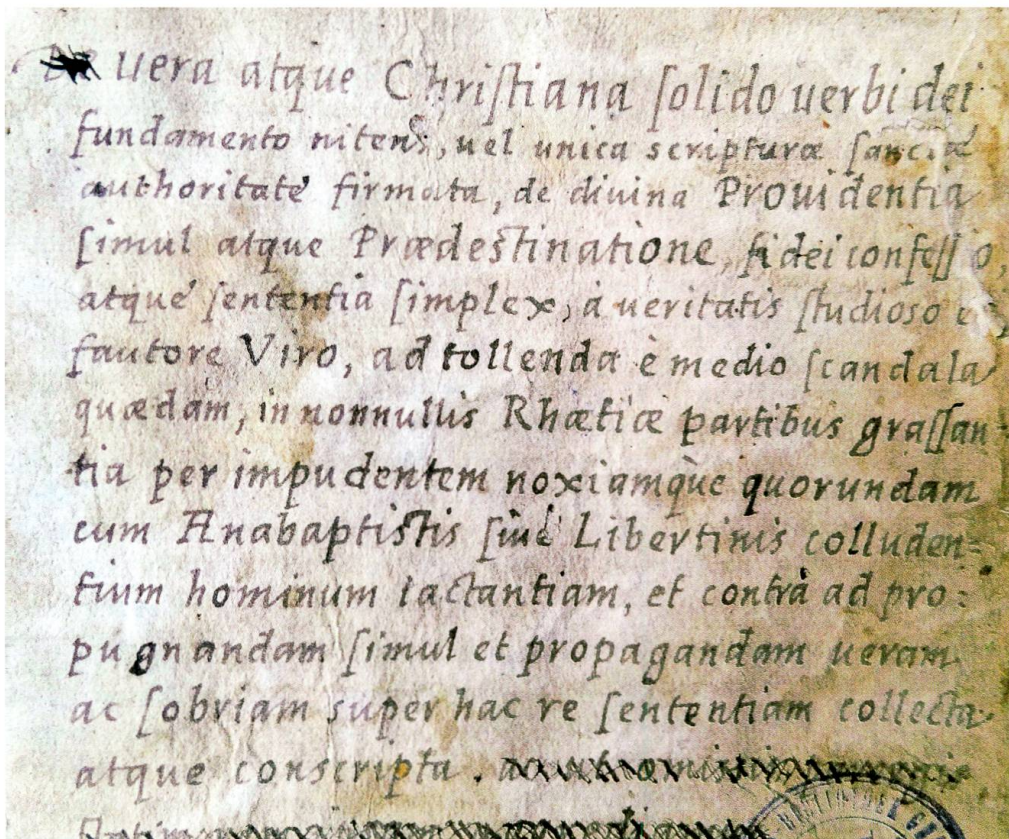 uera atque Christiana ſolido uerbi dei
fundamento nitens, uel unica scripturæ ſanctæ
authoritate firmata, de diuina Prouidentia
ſimul atque Prædeſtinatione, fidei confeſſio,
atque ſententia ſimplex, à ueritatis ſtudioso et
fautore Viro, ad tollenda è medio ſcandala
quædam, in nonnullis Rhæticæ partibus graſſan-
tia per impudentem noxiamque quorundam
cum Anabaptiſtis ſiue Libertinis colluden=
tium hominum iactantiam, et contrà ad pro=
pugnandam ſimul et propagandam ueram
ac ſobriam super hac re ſententiam collecta
atque conscripta.